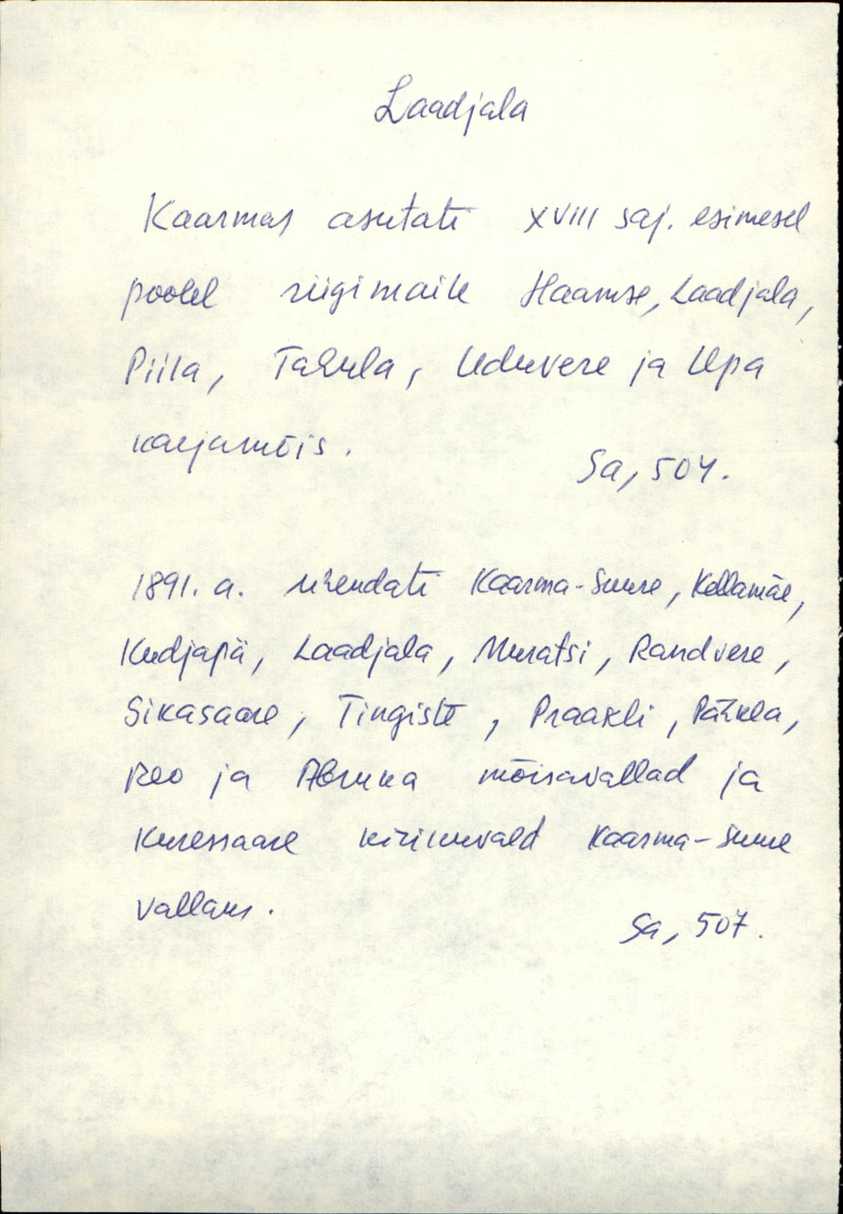 Laadjala
Kaarmas asutati XVIII saj. esimesel
poolel riigimaile Haamse, Laadjala,
Piila, Tahula, Uduvere ja Upa
karjamõis.
Sa, 504.
1891. a. ühendati Kaarma-Suure, Kellamäe,
Kudjapä, Laadjala, Muratsi, Randvere,
Sikasaare, Tingiste, Praakli, Pähkla,
Reo ja Abruka mõisavallad ja
Kuressaare kirikuvald Kaarma-Suure
vallaks.
Sa, 507.